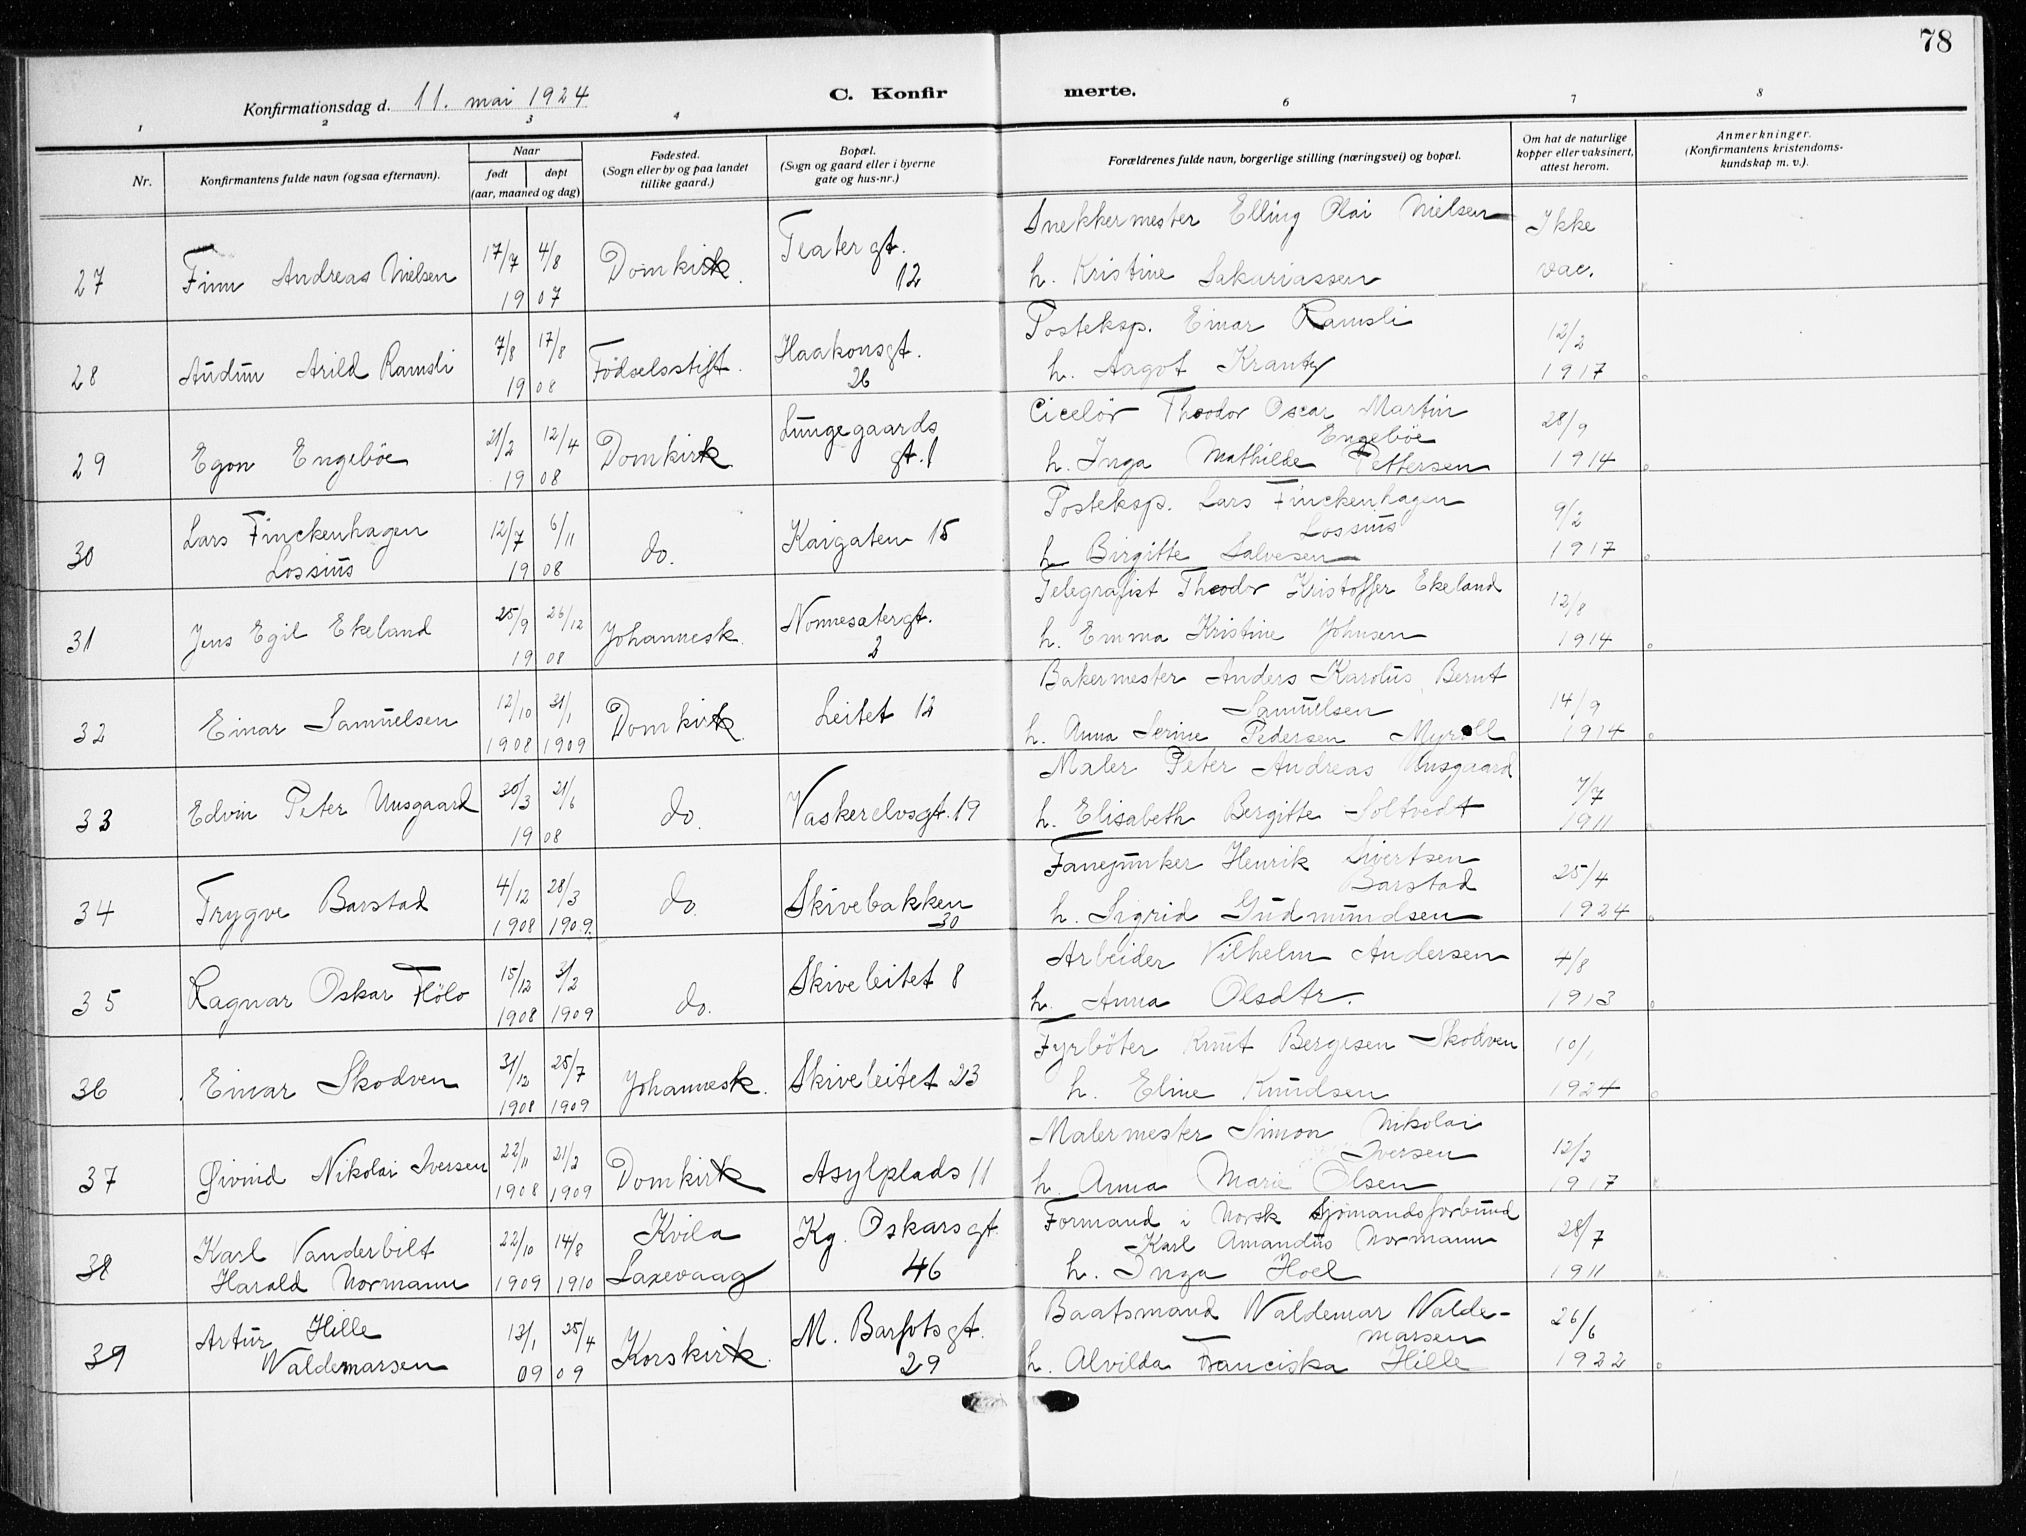 78
Konfirmationsdag d. 11. mai 1924 C. Konfir merte.
1 2 3 4 6 7 8
Nr. Konfirmantens fulde navn (ogsaa efternavn). Naar født døpt (aar, maaned og dag) Fødested. (Sogn eller by og paa landet tillike gaard.) Bopæl. (Sogn og gaard eller i byerne gate og hus-nr.) Forældrenes fulde navn, borgerlige stilling (næringsvei) og bopæl. Om hat de naturlige kopper eller vaksinert, attest herom. Anmerkninger. (Konfirmantens kristendoms-kundskap m. v.).
27 Finn Andreas Nielsen 17/7 4/8 1907 Domkirk. Teatergt. 12 Snekkermester Elling Olai Nielsen Ikke
h. Kristine Sakariassen vac.
28 Audun Arild Ramsli 7/8 17/8 1908 Fødselsstift. Haakonsgt. 26 Posteksp. Einar Ramsli 12/2
h. Aagot Krantz 1917
29 Egon Engebøe 21/2 12/4 1908 Domkirk Lungegaards gt. 1 Ciselør Theodor Oscar Martin Engebøe 28/9
h. Inga Mathilde Pettersen 1914
30 Lars Finckenhagen Lossius 12/7 6/11 1908 do. Kaigaten 15 Posteksp. Lars Finckenhagen Lossius 9/2
h Birgitte Salvesen 1917
31 Jens Egil Ekeland 25/9 26/12 1908 Johannesk. Nonnesatergt. 2 Telegrafist Theodor Kristoffer Ekeland 12/8
h. Emma Kristine Johnsen 1914
32 Einar Samuelsen 12/10 1908 31/1 1909 Domkirk. Leitet 12 Bakermester Anders Karolus Bernt Samuelsen 14/9
h. Anna Serine Pedersen Myroll 1914
33 Edvin Peter Unsgaard 30/3 21/6 1908 do. Vaskerelvsgt. 19 Maler Peter Andreas Unsgaard 7/7
h. Elisabeth Bergitte Soltvedt 1911
34 Trygve Barstad 4/12 1908 28/3 1909. do. Skivebakken 30 Fanejunker Henrik Sivertsen Barstad 25/4
h. Sigrid Gudmundsen 1924
35 Ragnar Oskar Flölo 15/12 1908 3/2 1909 do. Skiveleitet 8 Arbeider Vilhelm Andersen 4/8
h. Anna Olsdtr. 1913
36 Einar Skodven 31/12 1908 25/7 1909 Johannesk. Skiveleitet 23 Fyrböter Knut Bergesen Skodven 10/1
h. Eline Knudsen 1924
37 Øivind Nikolai Iversen 22/11 1908 21/2 1909 Domkirk Asylplads 11 Malermester Simon Nikolai Iversen 12/2
h. Anna Marie Olsen 1917
38 Karl Vanderbilt Harald Normann 22/10 1909 14/8 1910 Kvila Laxevaag Kg. Oskarsgt 46 Formand i Norsk Sjømandsforbund Karl Amandus Normann 28/7
h. Inga Hoel 1911
39 Artur Hille Waldemarsen 13/1 09 25/4 09 Korskirk. M. Barfotsgt. 29 Baatsmand Waldemar Waldemarsen 26/6
h. Alvilda Franciska Hille 1922